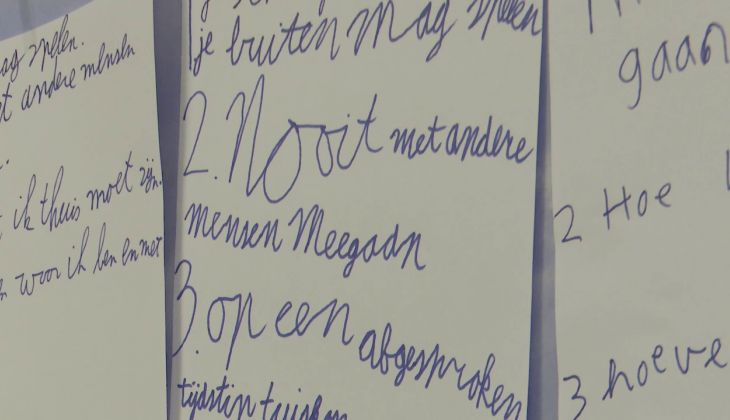 ag spelen.
et andere mensen
ik thuis moet zijn.
n woor ik ben en met
je buiten mag spelen
2. Nooit met andere
mensen meegaan
3. op een abgesproken
tijdstin
gaan
2 Hoe
3 hoeve